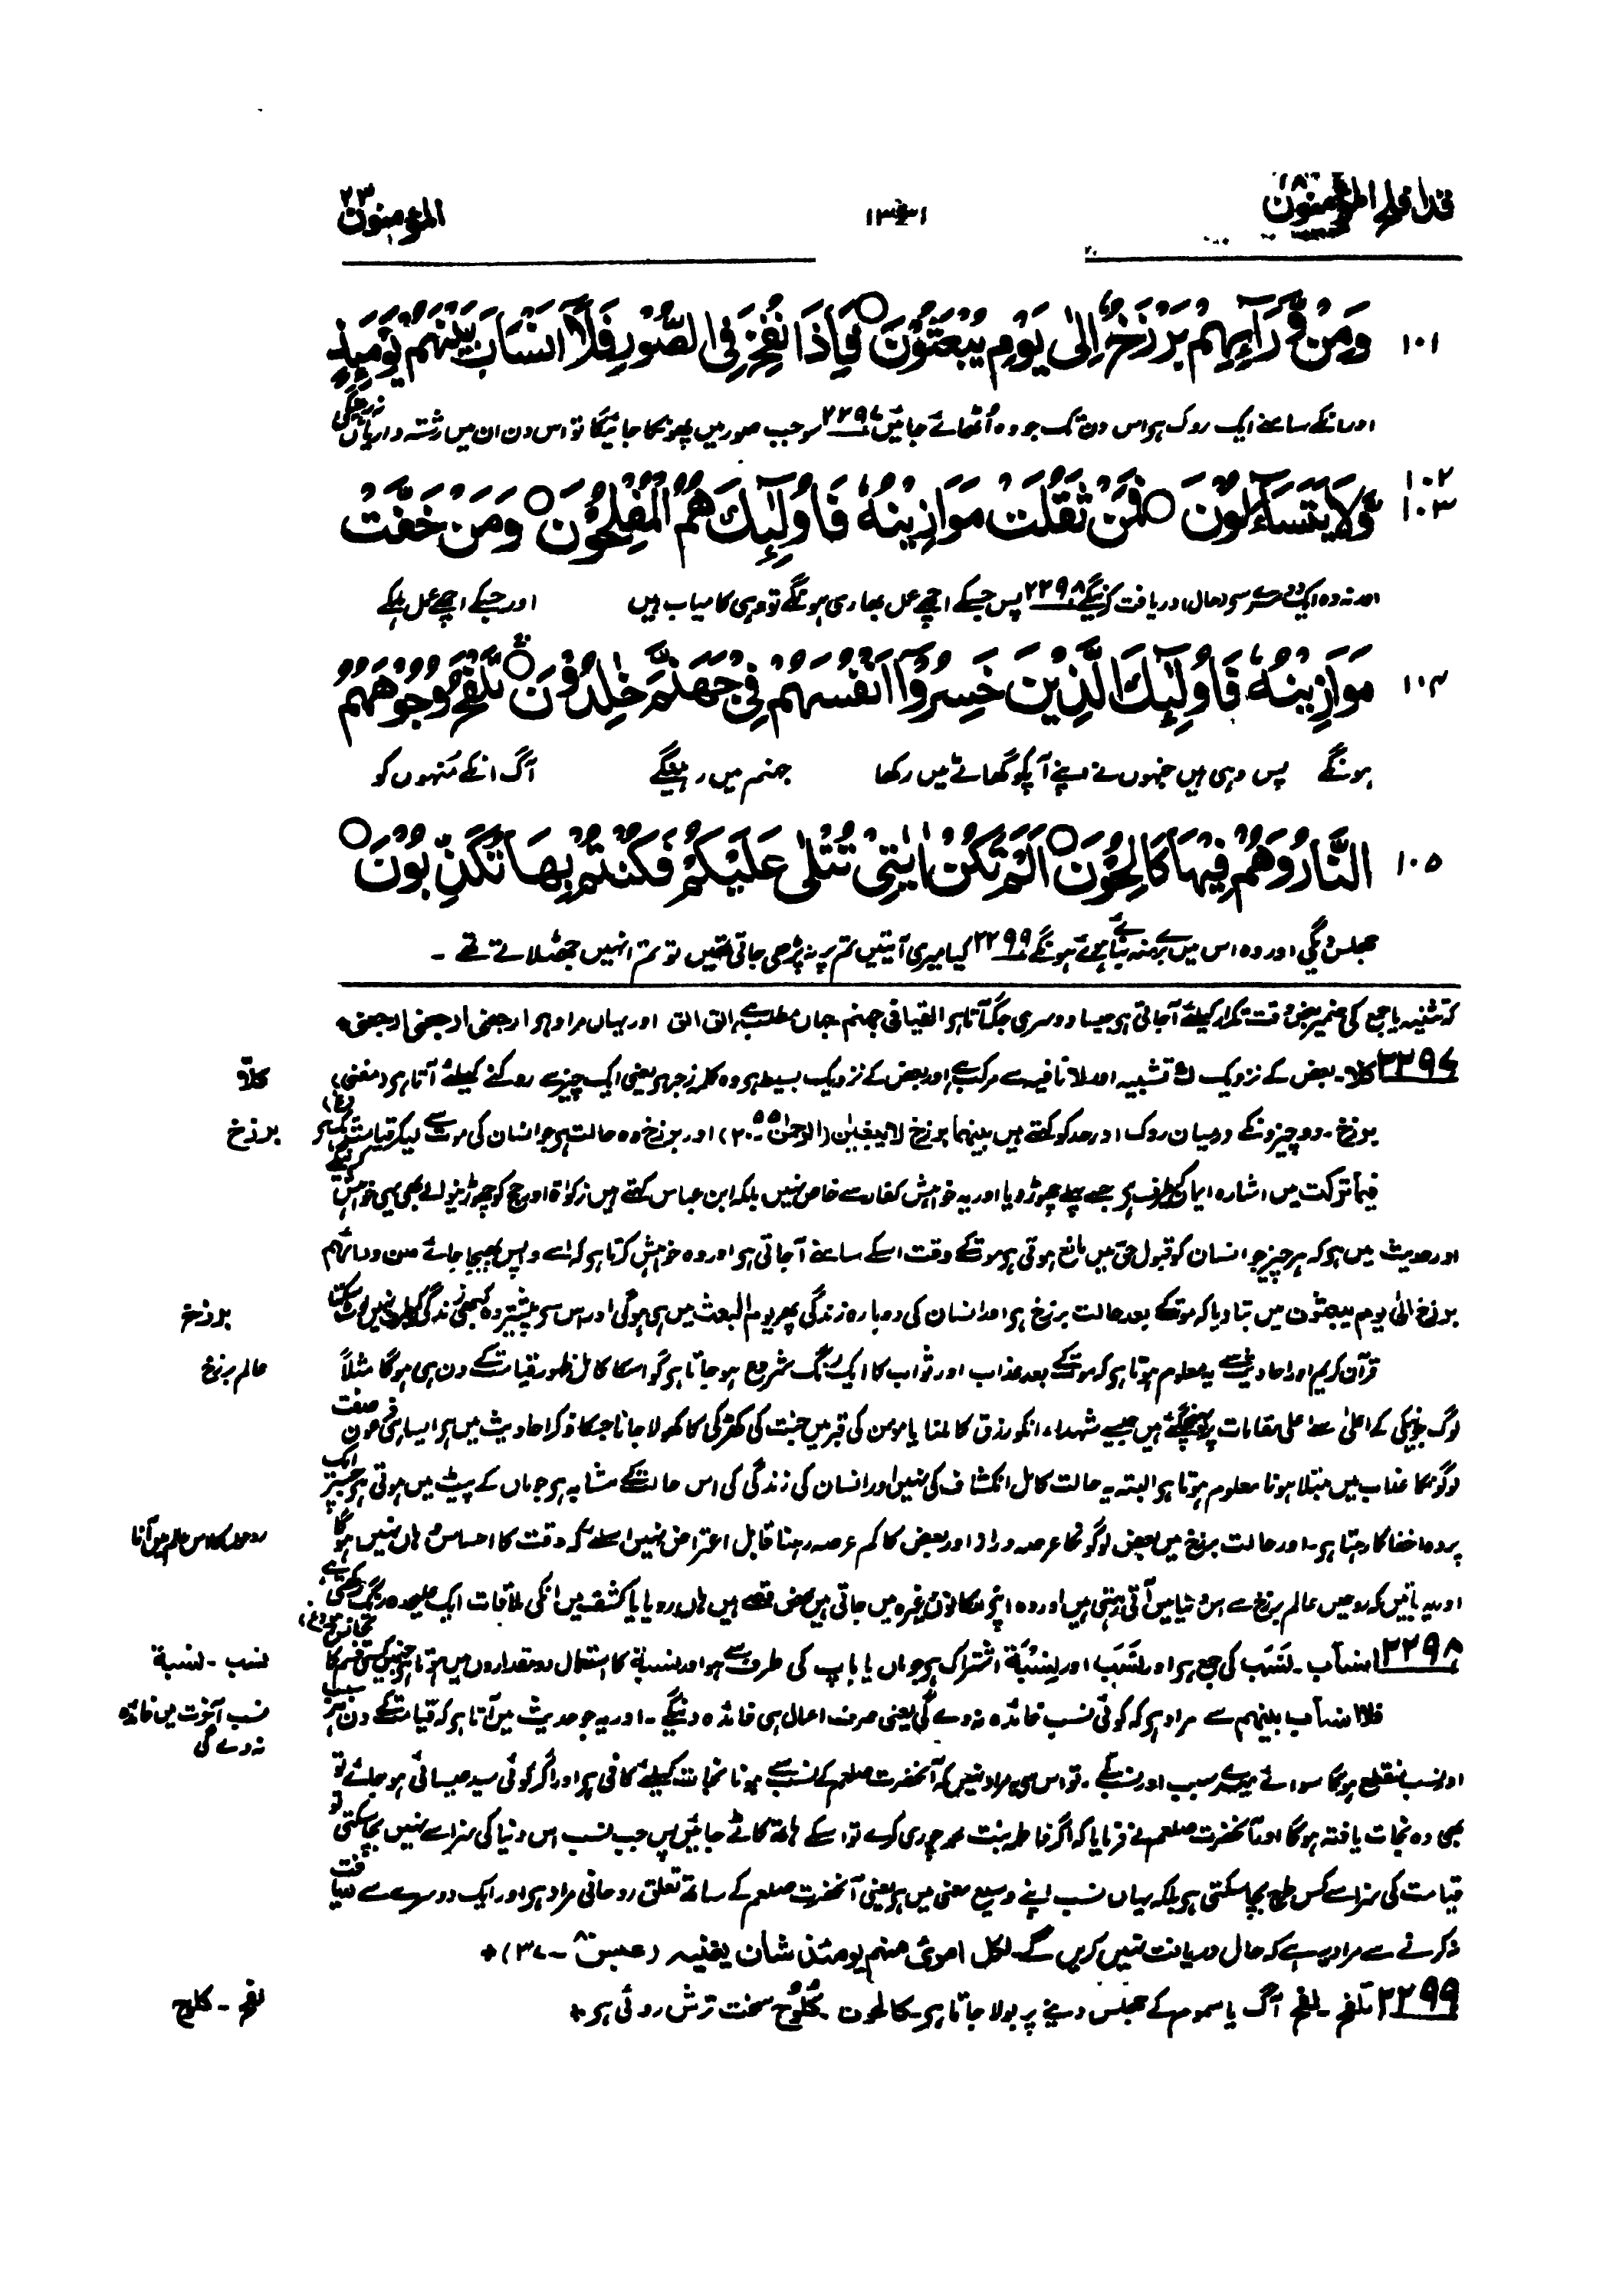 قد افلح المؤمنون ١٨
١٣٣١
المؤمنون ٢٣
١٠١ وَمِنْ وَّرَآئِهِمْ بَرْزَخٌ اِلٰى يَوْمِ يُبْعَثُوْنَ ○ فَاِذَا نُفِخَ فِى الصُّوْرِ فَلَآ اَنْسَابَ بَيْنَهُمْ يَوْمَئِذٍ
اور انکے سامنے ایک روک ہے اس دن تک جو وہ اُٹھائے جائیں ٢٢٩٧ سو جب صور میں پھونکا جائیگا تو اس دن ان میں رشتہ داریاں نہ رہینگی
١٠٢ ١٠٣ وَّلَا يَتَسَآءَلُوْنَ ○ فَمَنْ ثَقُلَتْ مَوَازِيْنُهٗ فَاُولٰٓئِكَ هُمُ الْمُفْلِحُوْنَ ○ وَمَنْ خَفَّتْ
اور نہ وہ ایک دوسرے سے (حال) دریافت کرینگے ٢٢٩٨ پس جسکے اچھے عمل بھاری ہونگے تو وہی کامیاب ہیں اور جسکے اچھے عمل ہلکے
١٠٤ مَوَازِيْنُهٗ فَاُولٰٓئِكَ الَّذِيْنَ خَسِرُوْٓا اَنْفُسَهُمْ فِىْ جَهَنَّمَ خٰلِدُوْنَ ○ تَلْفَحُ وُجُوْهَهُمُ
ہونگے پس وہی ہیں جنہوں نے اپنے آپکو گھاٹے میں رکھا جہنم میں رہینگے آگ انکے مُنہوں کو
١٠٥ النَّارُ وَهُمْ فِيْهَا كَالِحُوْنَ ○ اَلَمْ تَكُنْ اٰيٰتِىْ تُتْلٰى عَلَيْكُمْ فَكُنْتُمْ بِهَا تُكَذِّبُوْنَ ○
جھلس دیگی اور وہ اس میں بُرے منہ بنائے ہوئے ہونگے ٢٢٩٩ کیا میری آیتیں تم پر نہ پڑھی جاتی تھیں تو تم انہیں جھٹلاتے تھے ۔
کہ تثنیہ یا جمع کی ضمیر بعض وقت تکرار کیلئے آجاتی ہے جیسا دوسری جگہ آتا ہے القیا فی جہنم۔ جہاں مطلب ہے الق الق اور یہاں مراد ہے ارجعنی ارجعنی ارجعنی
٢٢٩٧ کلا۔ بعض کے نزدیک ک تشبیہ اور لا نافیہ سے مرکب ہے اور بعض کے نزدیک بسیط ہے وہ کلمہ زجر ہے یعنی ایک چیز سے روکنے کیلئے آتا ہے (مغنی)
کلّا
برزخ۔ دو چیزونکے درمیان روک اور حد کو کہتے ہیں بینہما برزخ لا یبغیٰن (الرحمٰن ٥٥۔ ٢٠) اور برزخ وہ حالت ہے جو انسان کی موت سے لیکر قیامت تک ہے (غ)
برزخ
فیما ترکت میں اشارہ ایمان کیطرف ہے جسے پہلے چھوڑ دیا اور یہ خواہش کفار سے خاص نہیں بلکہ ابن عباس کہتے ہیں زکوٰۃ اور حج کو چھوڑنیوالے بھی یہی خواہش کرینگے
اور حدیث میں ہے کہ ہر چیز جو انسان کو قبول حق میں مانع ہوتی ہے موت کے وقت اسکے سامنے آجاتی ہے اور وہ خواہش کرتا ہے کہ اسے واپس بھیجا جائے
برزخ الٰی یوم یبعثون میں بتا دیا کہ موت کے بعد حالت برزخ ہے اور انسان کی دوبارہ زندگی پھر یوم البعث میں ہی ہوگی اور اس سے پیشتر وہ کبھی زندگی کیطرف نہیں لوٹ سکتا
برزخ
قرآن کریم اور احادیث سے یہ معلوم ہوتا ہے کہ موت کے بعد عذاب اور ثواب کا ایک رنگ شروع ہو جاتا ہے گو اسکا کامل ظہور قیامت کے دن ہی ہوگا مثلاً
عالم برزخ
لوگ جو نیکی کے اعلیٰ سے اعلیٰ مقامات پر پہنچ گئے ہیں جیسے شہداء، انکو رزق کا ملنا یا مومن کی قبر میں جنت کی کھڑکی کا کھولا جانا جسکا ذکر احادیث میں ہے ایسا ہی فرعون صفت
لوگونکا عذاب میں مبتلا ہونا معلوم ہوتا ہے البتہ یہ حالت کامل انکشاف کی نہیں اور انسان کی زندگی کی اس حالت کے مشابہ ہے جو ماں کے پیٹ میں ہوتی ہے جسپر ایک
پردہ اخفا کا رہتا ہے۔ اور حالت برزخ میں بعض لوگونکا عرصہ دراز اور بعض کا کم عرصہ رہنا قابل اعتراض نہیں اسلئے کہ وقت کا احساس وہاں نہیں ہوگا
روحوں کا اس عالم میں آنا
اور یہ باتیں کہ روحیں عالم برزخ سے اس دنیا میں آتی رہتی ہیں اور وہ اپنے مکانوں وغیرہ میں جاتی ہیں محض قصے ہیں ہاں رویا یا کشف میں انکی ملاقات ایک علیحدہ رنگ رکھتی ہے
٢٢٩٨ انساب۔ نَسَب کی جمع ہے اور نَسَب اور نِسْبَة اشتراک ہے جو ماں یا باپ کی طرف سے ہو اور نسبة کا استعمال دو مقداروں میں ہوتا ہے جنہیں کسی قسم کا تجانس ہو (غ)
نسب ۔ نسبة
فلا انساب بینہم سے مراد ہے کہ کوئی نسب فائدہ نہ دے گی یعنی صرف اعمال ہی فائدہ دینگے ۔ اور یہ جو حدیث میں آتا ہے کہ قیامت کے دن ہر سبب
نسب آخرت میں فائدہ
نہ دے گی
اور نسب منقطع ہوگا سوائے میرے سبب اور نسب کے ۔ تو اس سے یہ مراد نہیں کہ آنحضرت صلعم کے نسب سے ہونا نجات کیلئے کافی ہے اور اگر کوئی سید عیسائی ہو جائے تو
بھی وہ نجات یافتہ ہوگا اور آنحضرت صلعم نے فرمایا کہ اگر فاطمہ بنت محمد چوری کرے تو اسکے ہاتھ کاٹے جائیں پس جب نسب اس دنیا کی سزا سے نہیں بچا سکتی تو
قیامت کی سزا سے کس طرح بچا سکتی ہے بلکہ یہاں نسب اپنے وسیع معنی میں ہے یعنی آنحضرت صلعم کے ساتھ تعلق روحانی مراد ہے اور ایک دوسرے سے دریافت
نہ کرنے سے مراد یہ ہے کہ حال دریافت نہیں کریں گے۔ لکل امرئ منہم یومئذ شان یغنیہ (عبس ٨٠۔ ٣٧) +
٢٢٩٩ تلفح ۔ لفح آگ یا سموم کے جھلس دینے پر بولا جاتا ہے۔ کالحون ۔ کُلُوح سخت ترش روئی ہے +
لفح ۔ کلوح